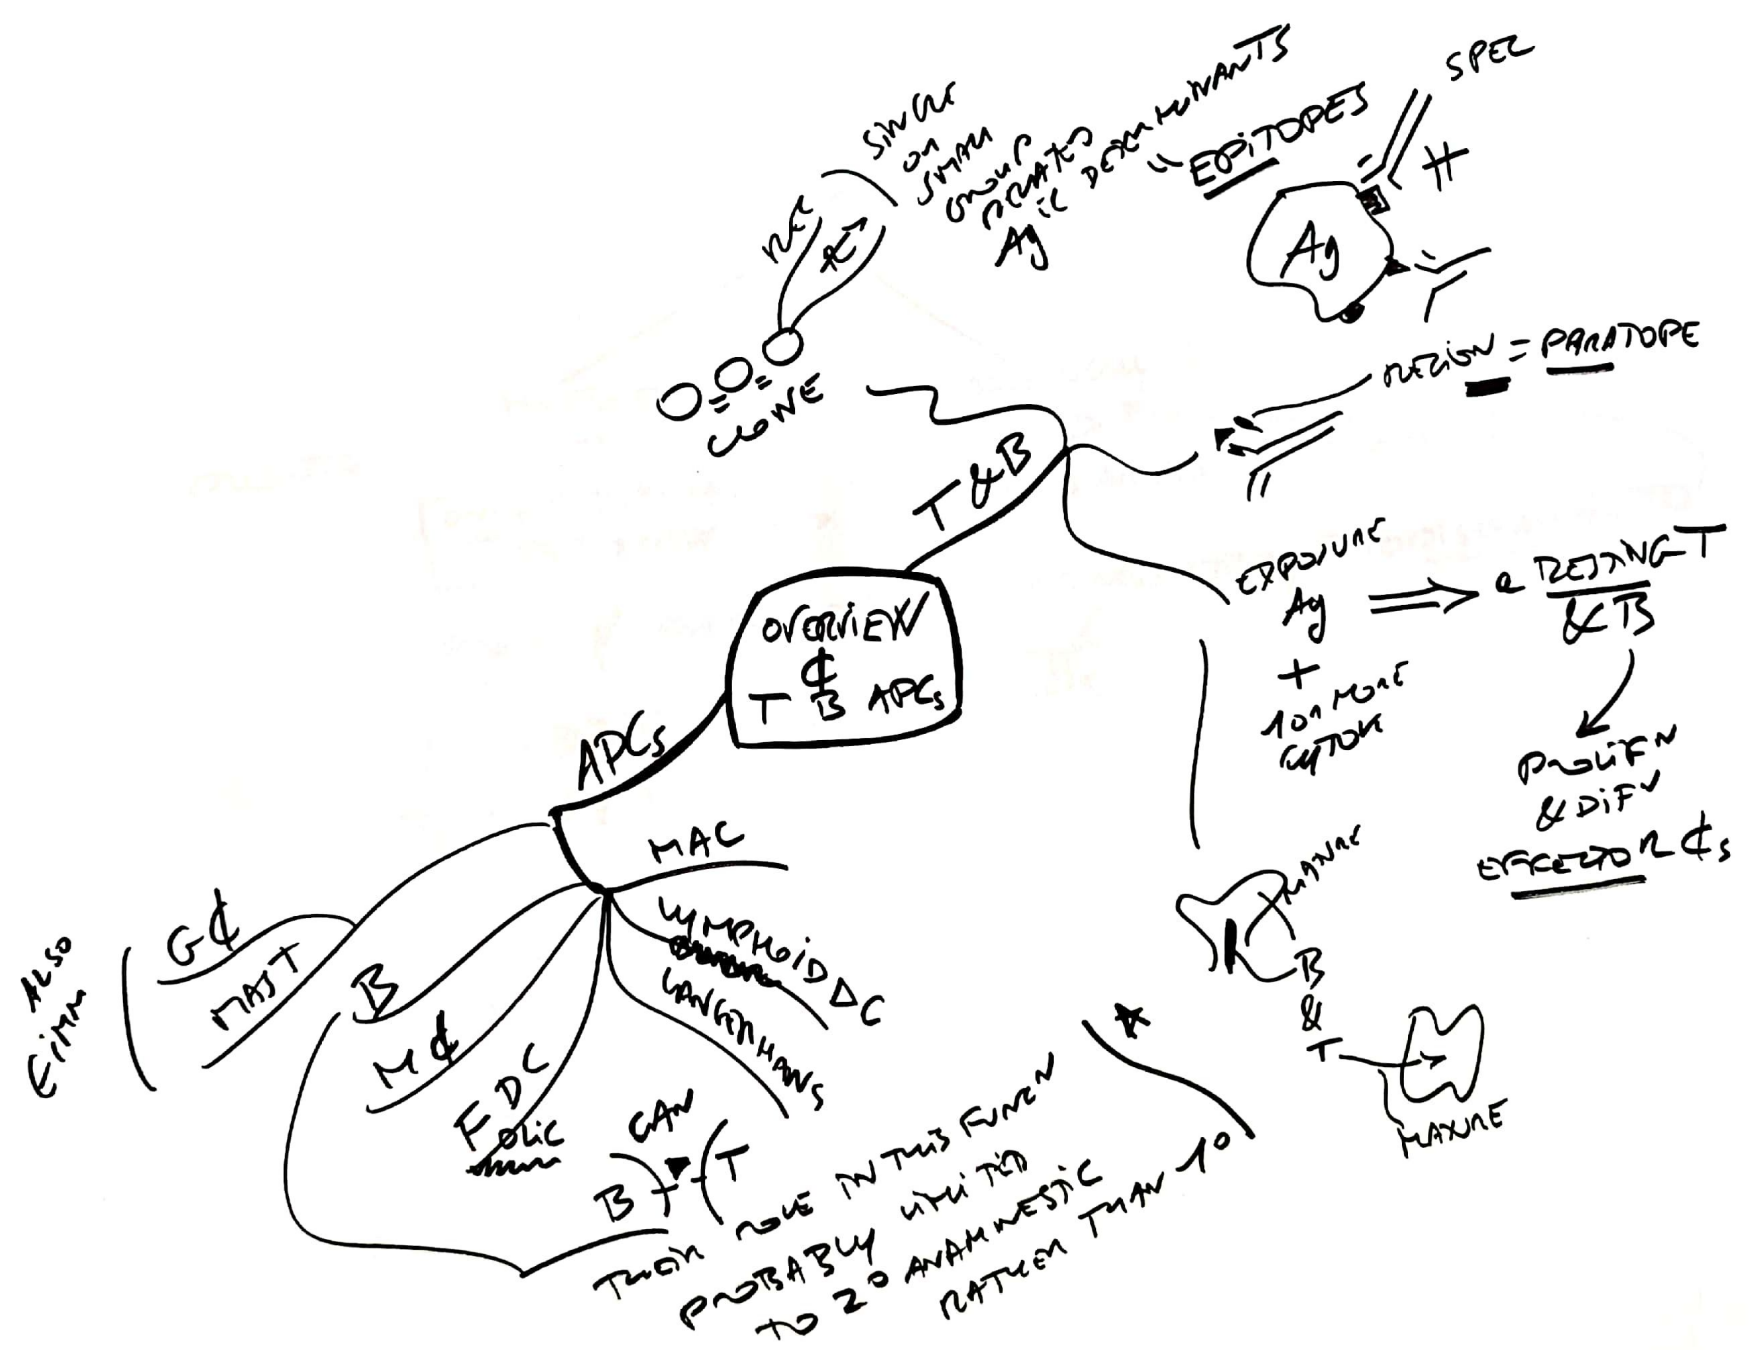 OVERVIEW
₵
T B APCs
T & B
CLONE
REC
SINGLE
OR
SMALL
GROUP
RELATED
Ag ic DETERMINANTS
"EPITOPES
SPEC
Ag
REGION = PARATOPE
EXPOSURE
Ag
+
1 OR MORE
CYTOK
RESTING T
& B
PROLIFN
& DIFN
EFFECTOR ₵s
MATURE
B
&
T
MATURE
APCs
MAC
LYMPHOID DC
LANGERHANS
FDC
FOLIC
M₵
B
MAST
G₵
ALSO
CAN
B
T
THEIR ROLE IN THIS FUNCN
PROBABLY LIMITED
TO 2° ANAMNESTIC
RATHER THAN 1°